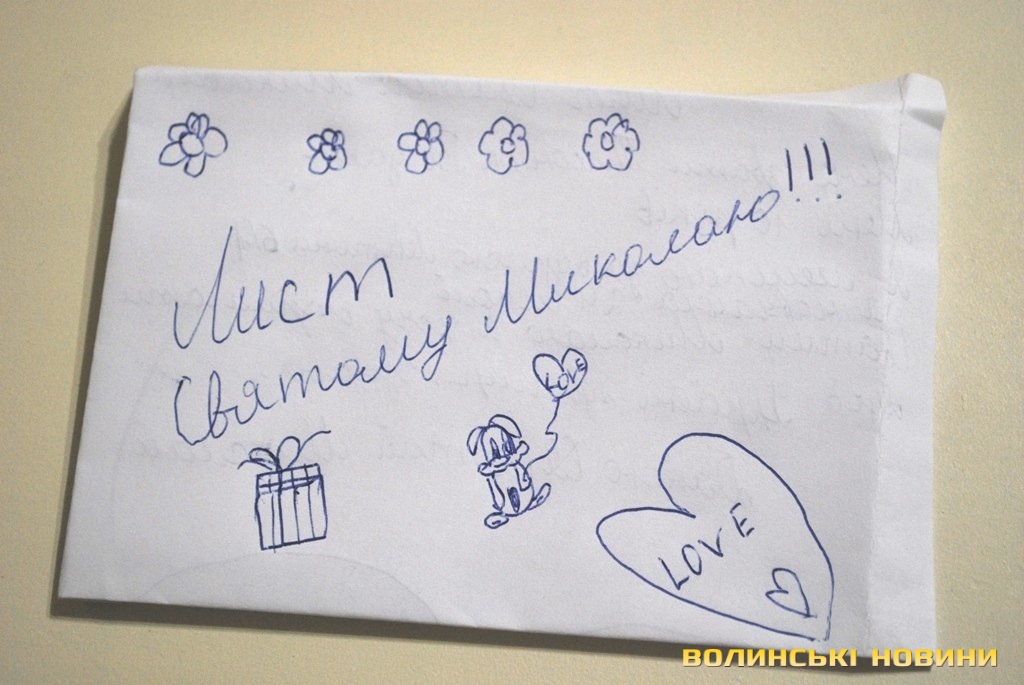 Лист
Святому Миколаю!!!
LOVE
LOVE
ВОЛИНСЬКІ НОВИНИ